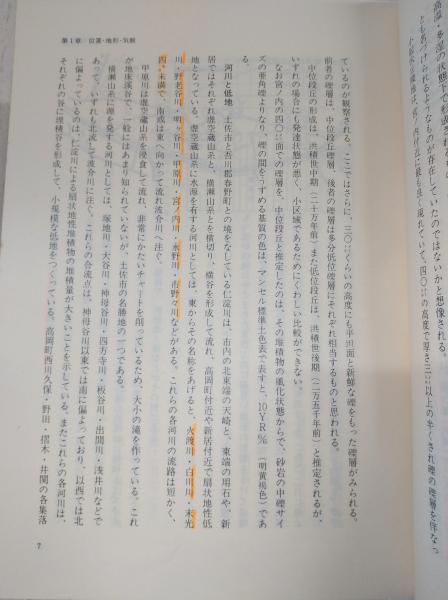 ているのが観察される。ここではさらに、三〇㍍くらいの高度にも平坦面と新鮮な礫をもった礫層がみられる。
前者の礫層は、中位段丘礫層、後者の礫層は多分低位礫層にそれぞれ相当するものと思われる。
中位段丘の形成は、洪積世中期(二十万年前)また低位段丘は、洪積世後期(二万五千年前)と推定されるが、
いずれの場合にも発達状態が悪く、小区域であるためにくわしい比較ができない。
なお宮ノ内の四〇㍍面での礫層を、中位段丘と推定したのは、その堆積物の風化状態からで、砂岩の中礫サイ
ズの亜角礫よりなり、礫の間をうずめる基質の色は、マンセル標準土色表で表すと、10YR(明黄褐色)であ
る。
河川と低地 土佐市と吾川郡春野町との境をなしている仁淀川は、市内の北東端の天崎と、東端の用石や、新
居ではそれぞれ虚空蔵山系と、横瀬山系とを横切り、横谷を形成して流れ、高岡町付近や新居付近で扇状地性低
地となっている。虚空蔵山系に水源を有する河川としては、東からその名称をあげると、火渡川・白川川・末光
川・野老谷川・鳴ヶ谷川・甲原川・宮ノ内川・永野川・市野々川などがある。これらの各河川の流路は短かく、
四㌔未満で、南或は東へ向かって流れ波介川へ注ぐ。
甲原川は虚空蔵山系を浸食して流れ、非常にかたいチャートを削っているため、大小の滝を作っている。これ
が地床渓谷で、一般にはあまり知られていないが、土佐市の名勝地の一つである。
横瀬山系に源を発する河川としては、塚地川・大谷川・神母谷川・四方寺川・板谷川・出間川・浅井川などで
あって、いずれも北流して波介川に注ぐ。これらの合流点は、神母谷川以東では南に偏よっており、以西では北
に偏よっているのは、仁淀川による扇状地性堆積物の堆積量が大きいことを示している。またこれらの各河川は、
それぞれの谷に堆積谷を形成して、小規模な低地をつくっている。高岡町西川久保・野田・摺木・井関の各集落
第1章 位置・地形・気候
7